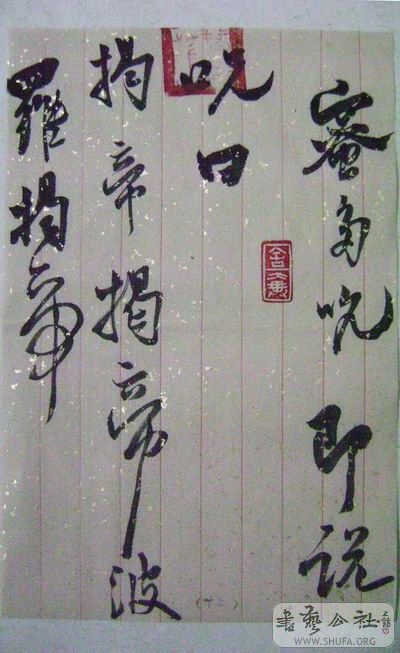 蜜多呪即说
呪曰
揭帝揭帝波
羅揭帝
(十二)
書藝公社
WWW.SHUFA.ORG